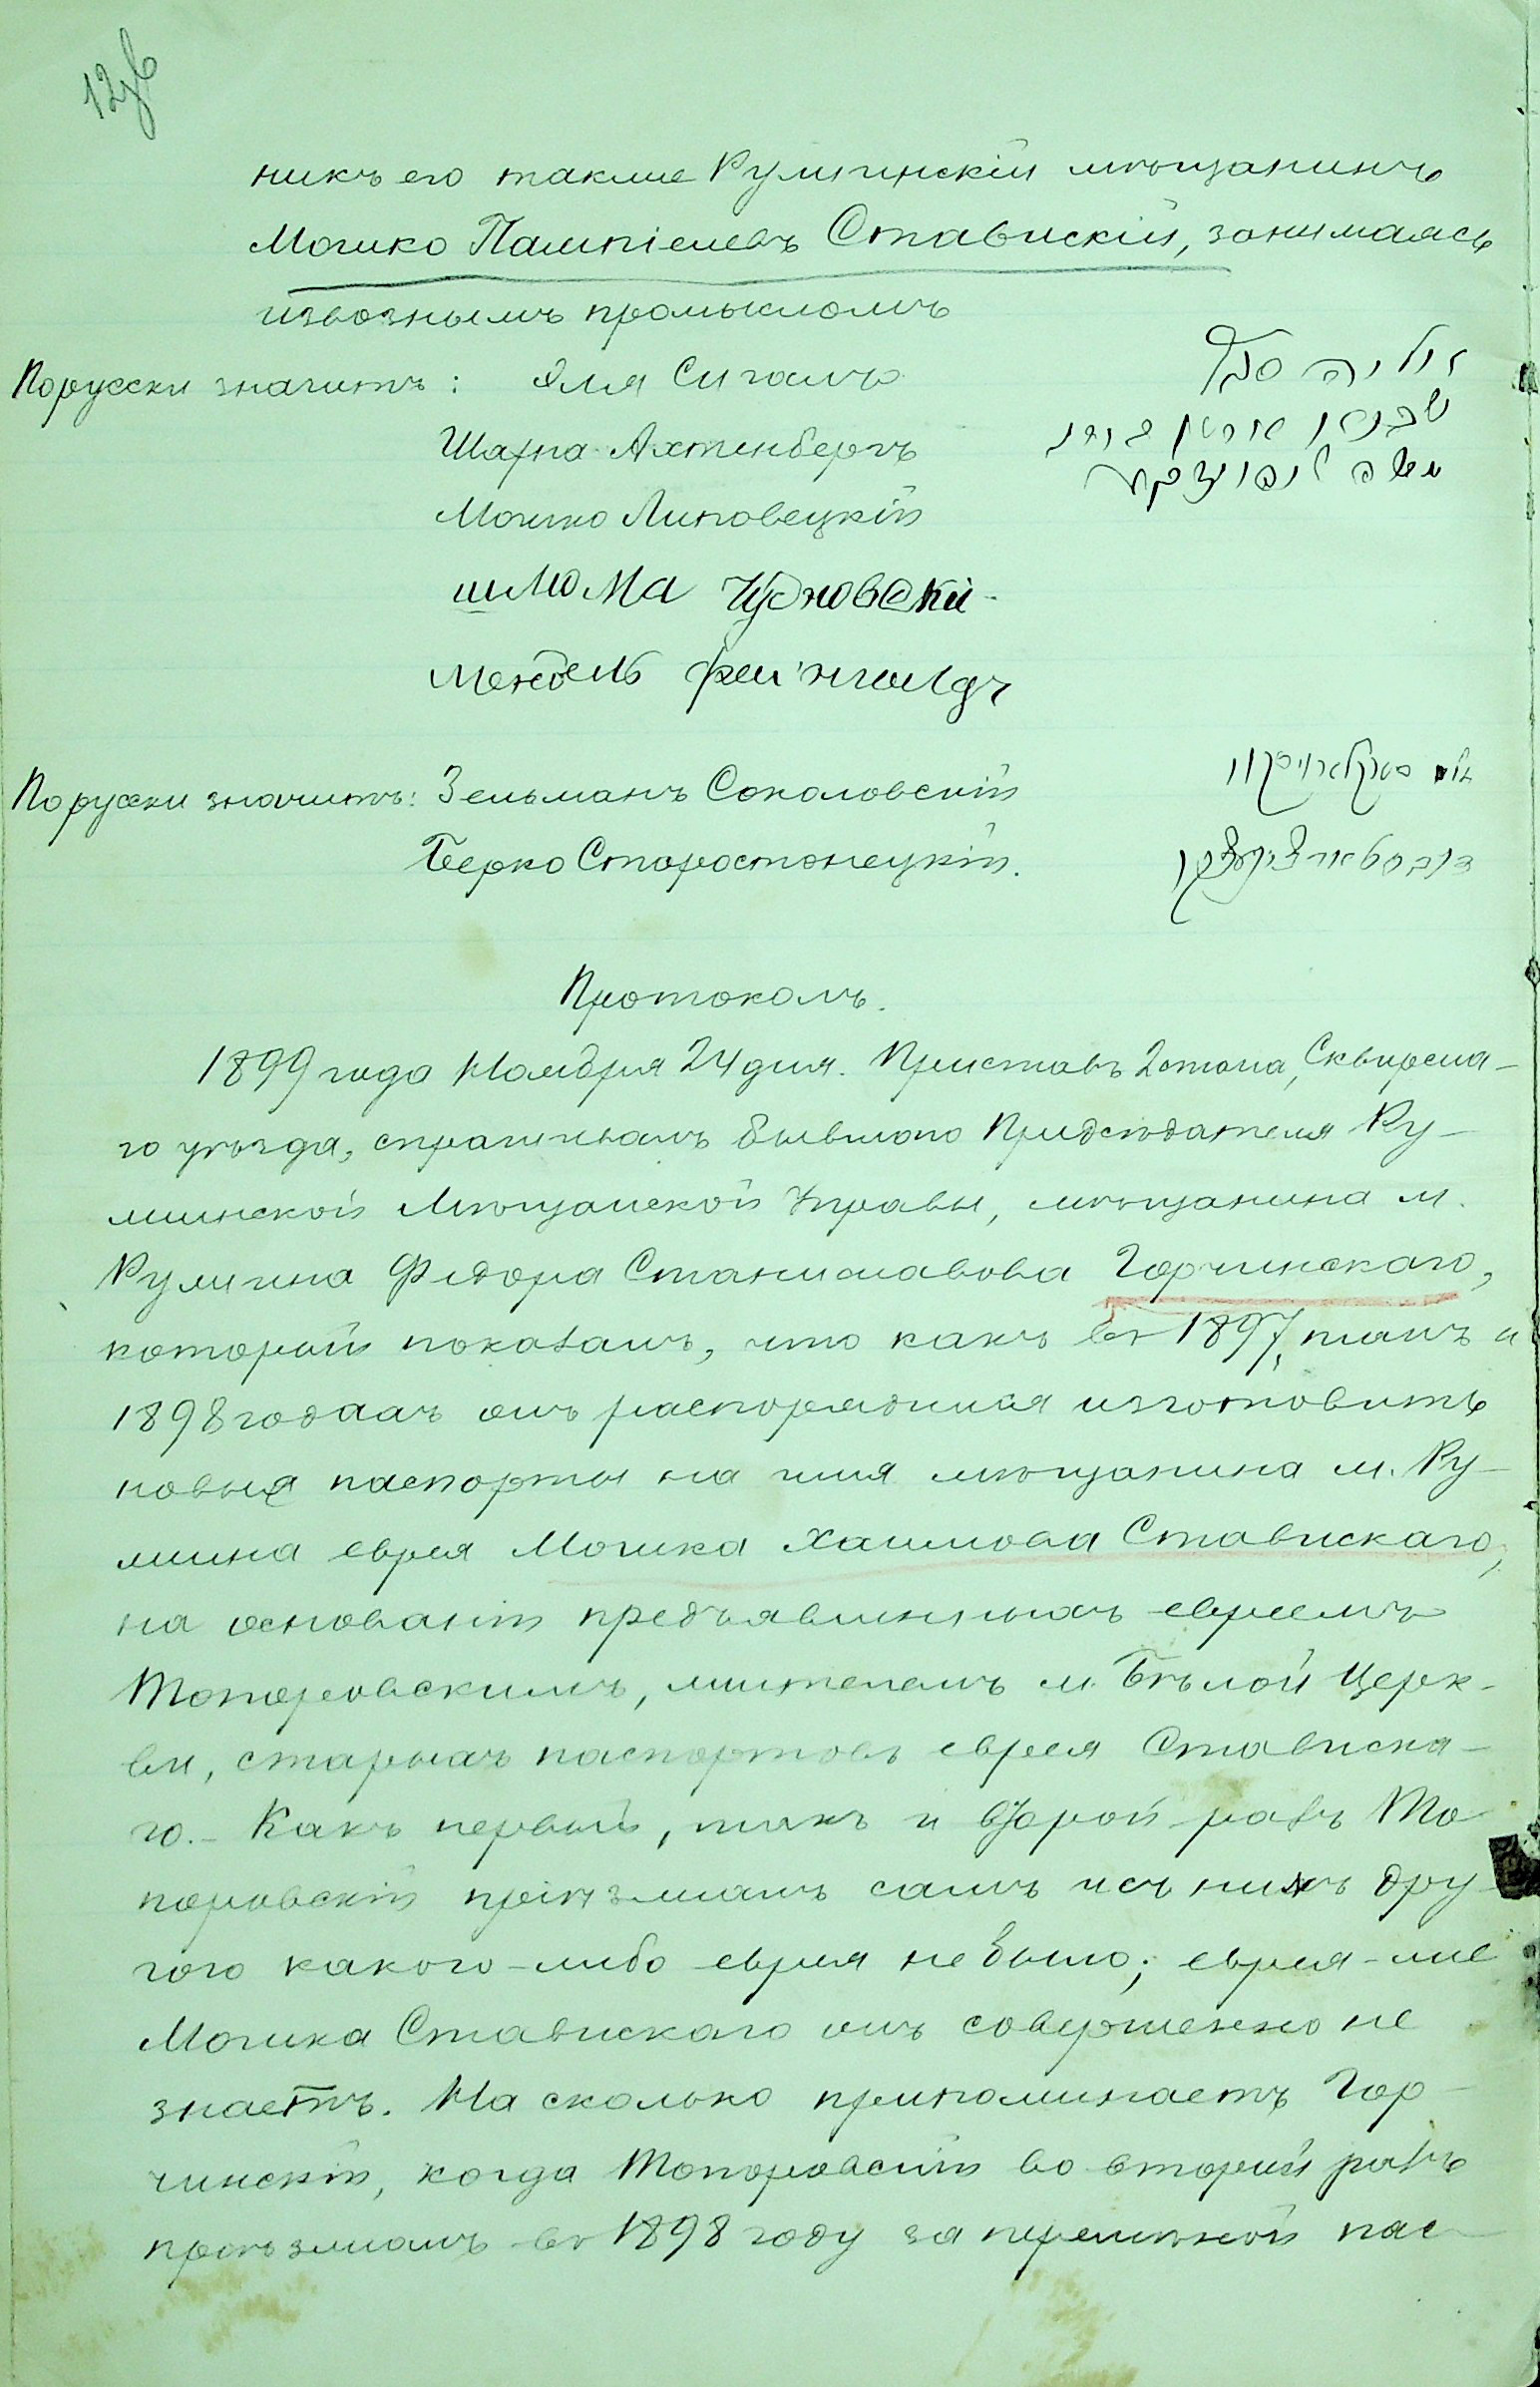 никъ его также Ружинскій мѣщанинъ
Мошко Пампіелевъ Ставискій, занимаясь
извознымъ промысломъ
Порусски значитъ: Эля Сигалъ
Шахна Ахтенбергъ
Мошко Липовецкій
шлюма Чудновски
Мендель фейнгольдъ
Порусски значитъ: Зельманъ Соколовскій
Берко Старостонецкій.
Протоколъ.
1899 года Ноября 24 дня. Приставъ 2 стана, Сквирска-
го уѣзда, спрашивалъ бывшаго Предсѣдателя Ру-
жинской Мѣщанской Управы, мѣщанина м.
Ружина Федора Станиславова Горчинскаго,
который показалъ, что какъ въ 1897, такъ и
1898 годахъ онъ распорядился изготовить
новыя паспорты на имя мѣщанина м. Ру-
жина еврея Мошка Хаимова Ставискаго,
на основаніи предъявленныхъ евреемъ
Топоровскимъ, жителемъ м. Бѣлой Церк-
ви, старыхъ паспортовъ еврея Стависка-
го.- Какъ первый, такъ и второй разъ То
поровскій пріѣзжалъ самъ и съ нимъ дру-
гого какого-либо еврея не было; еврея-же
Мошка Ставискаго онъ совершенно не
знаетъ. На сколько припоминаетъ Гор-
чинскій, когда Топоровскій во второй разъ
пріѣзжалъ въ 1898 году за перемѣной пас-